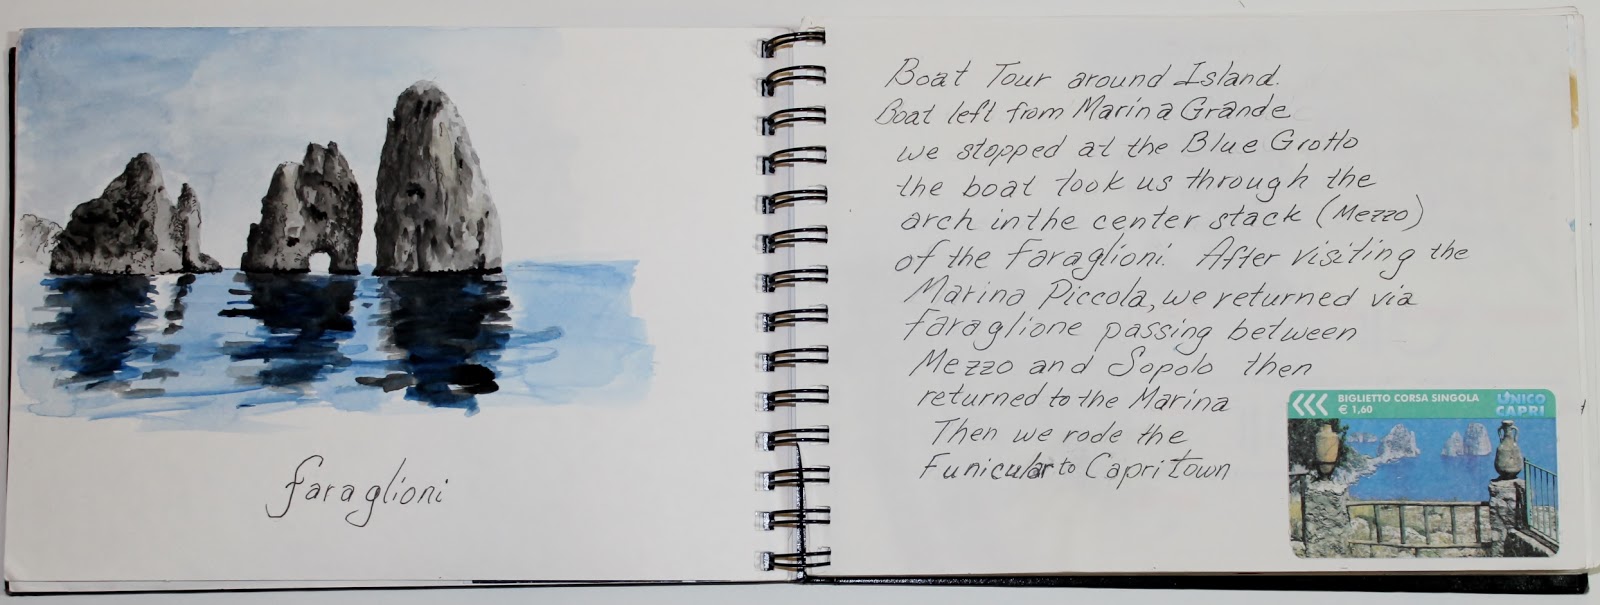 faraglioni
Boat Tour around Island.
Boat left from Marina Grande
we stopped at the Blue Grotto
the boat took us through the
arch in the center stack (Mezzo)
of the Faraglioni. After visiting the
Marina Piccola, we returned via
faraglione passing between
Mezzo and Sopolo then
returned to the Marina
Then we rode the
Funicular to Capri Town
BIGLIETTO CORSA SINGOLA
€ 1,60
UNICO
CAPRI